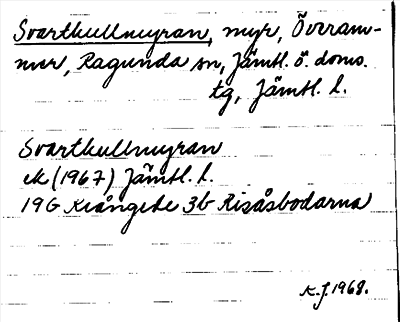 Svartkullmyran, myr, Överam-
mer, Ragunda sn, Jämtl. ö. doms.
tg, Jämtl. l.
Svartkullmyran
ek (1967) Jämtl. l.
19G Krångede 3b Risåsbodarna
K.J. 1968.